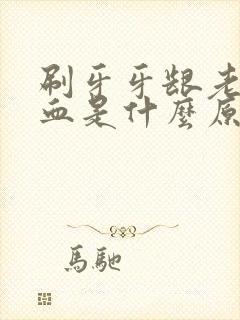 刷牙牙龈老
血是什麼原
馬馳